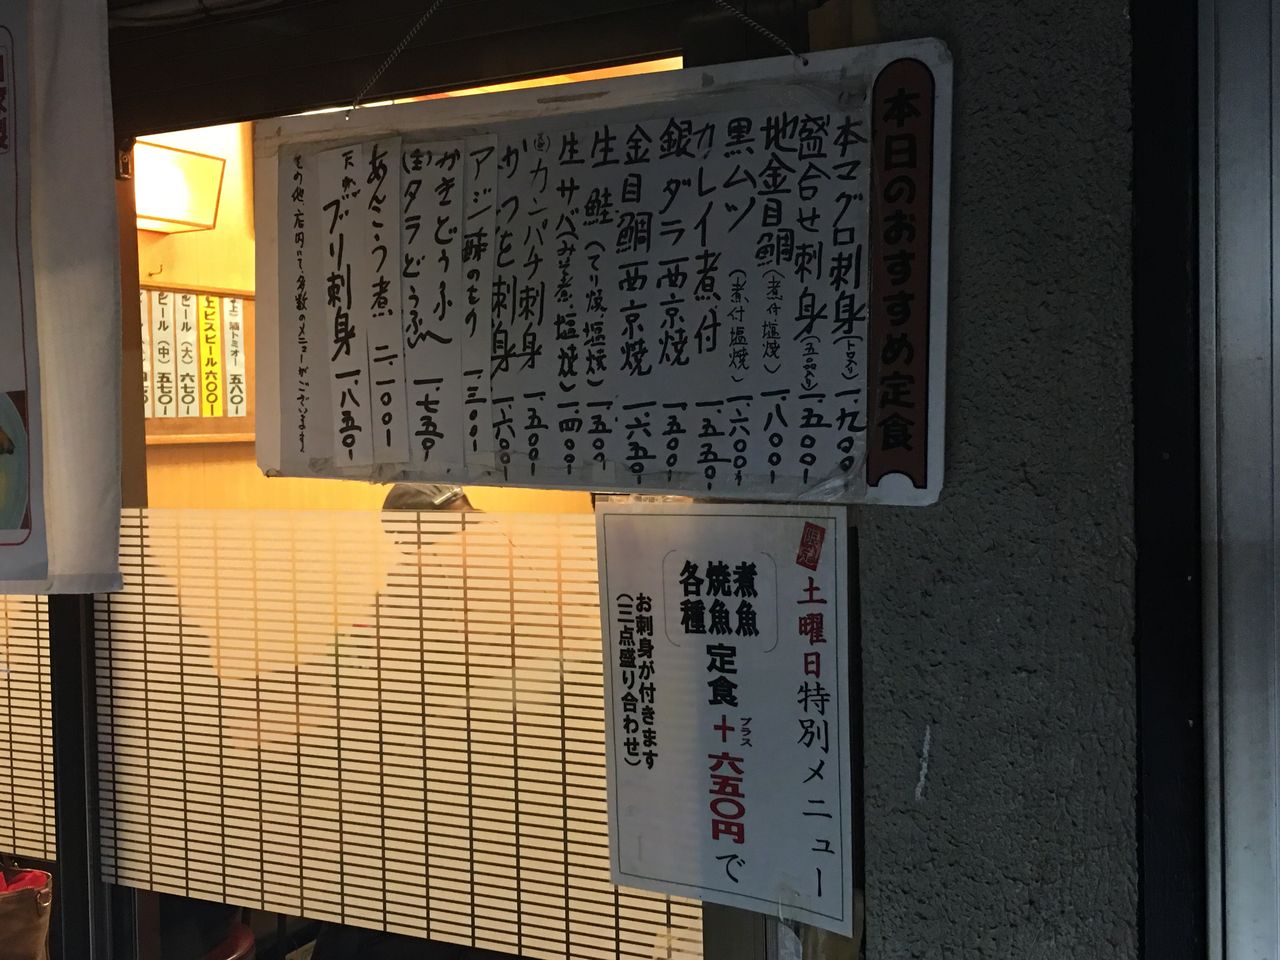 本日のおすすめ定食
本マグロ刺身(トロ入り)一、九〇〇
盛合せ刺身(五品入り)一、五〇〇-
地金目鯛(煮付 塩焼)一、八〇〇-
黒ムツ(煮付 塩焼)一、六〇〇-
カレイ煮付 一、五五〇-
銀ダラ西京焼 一、五〇〇-
金目鯛西京焼 一、六五〇-
生鮭(てり焼、塩焼)一、五〇〇
生サバ(みそ煮、塩焼)一、四〇〇-
カンパチ刺身 一、五〇〇-
かつを刺身 一、六〇〇-
アジ酢のもの 一、三〇〇-
かきどうふ
タラどうふ 一、七五〇-
あんこう煮 二、一〇〇-
天然ブリ刺身 一、八五〇-
その他 店内にて多数のメニューがございます
限定
土曜日特別メニュー
煮魚
焼魚
各種
定食+六五〇円で
プラス
お刺身が付きます
(三点盛り合わせ)
トミオー 五八〇-
ビスビール 六〇〇-
ビール(大)六七〇-
ビール(中)五七〇-